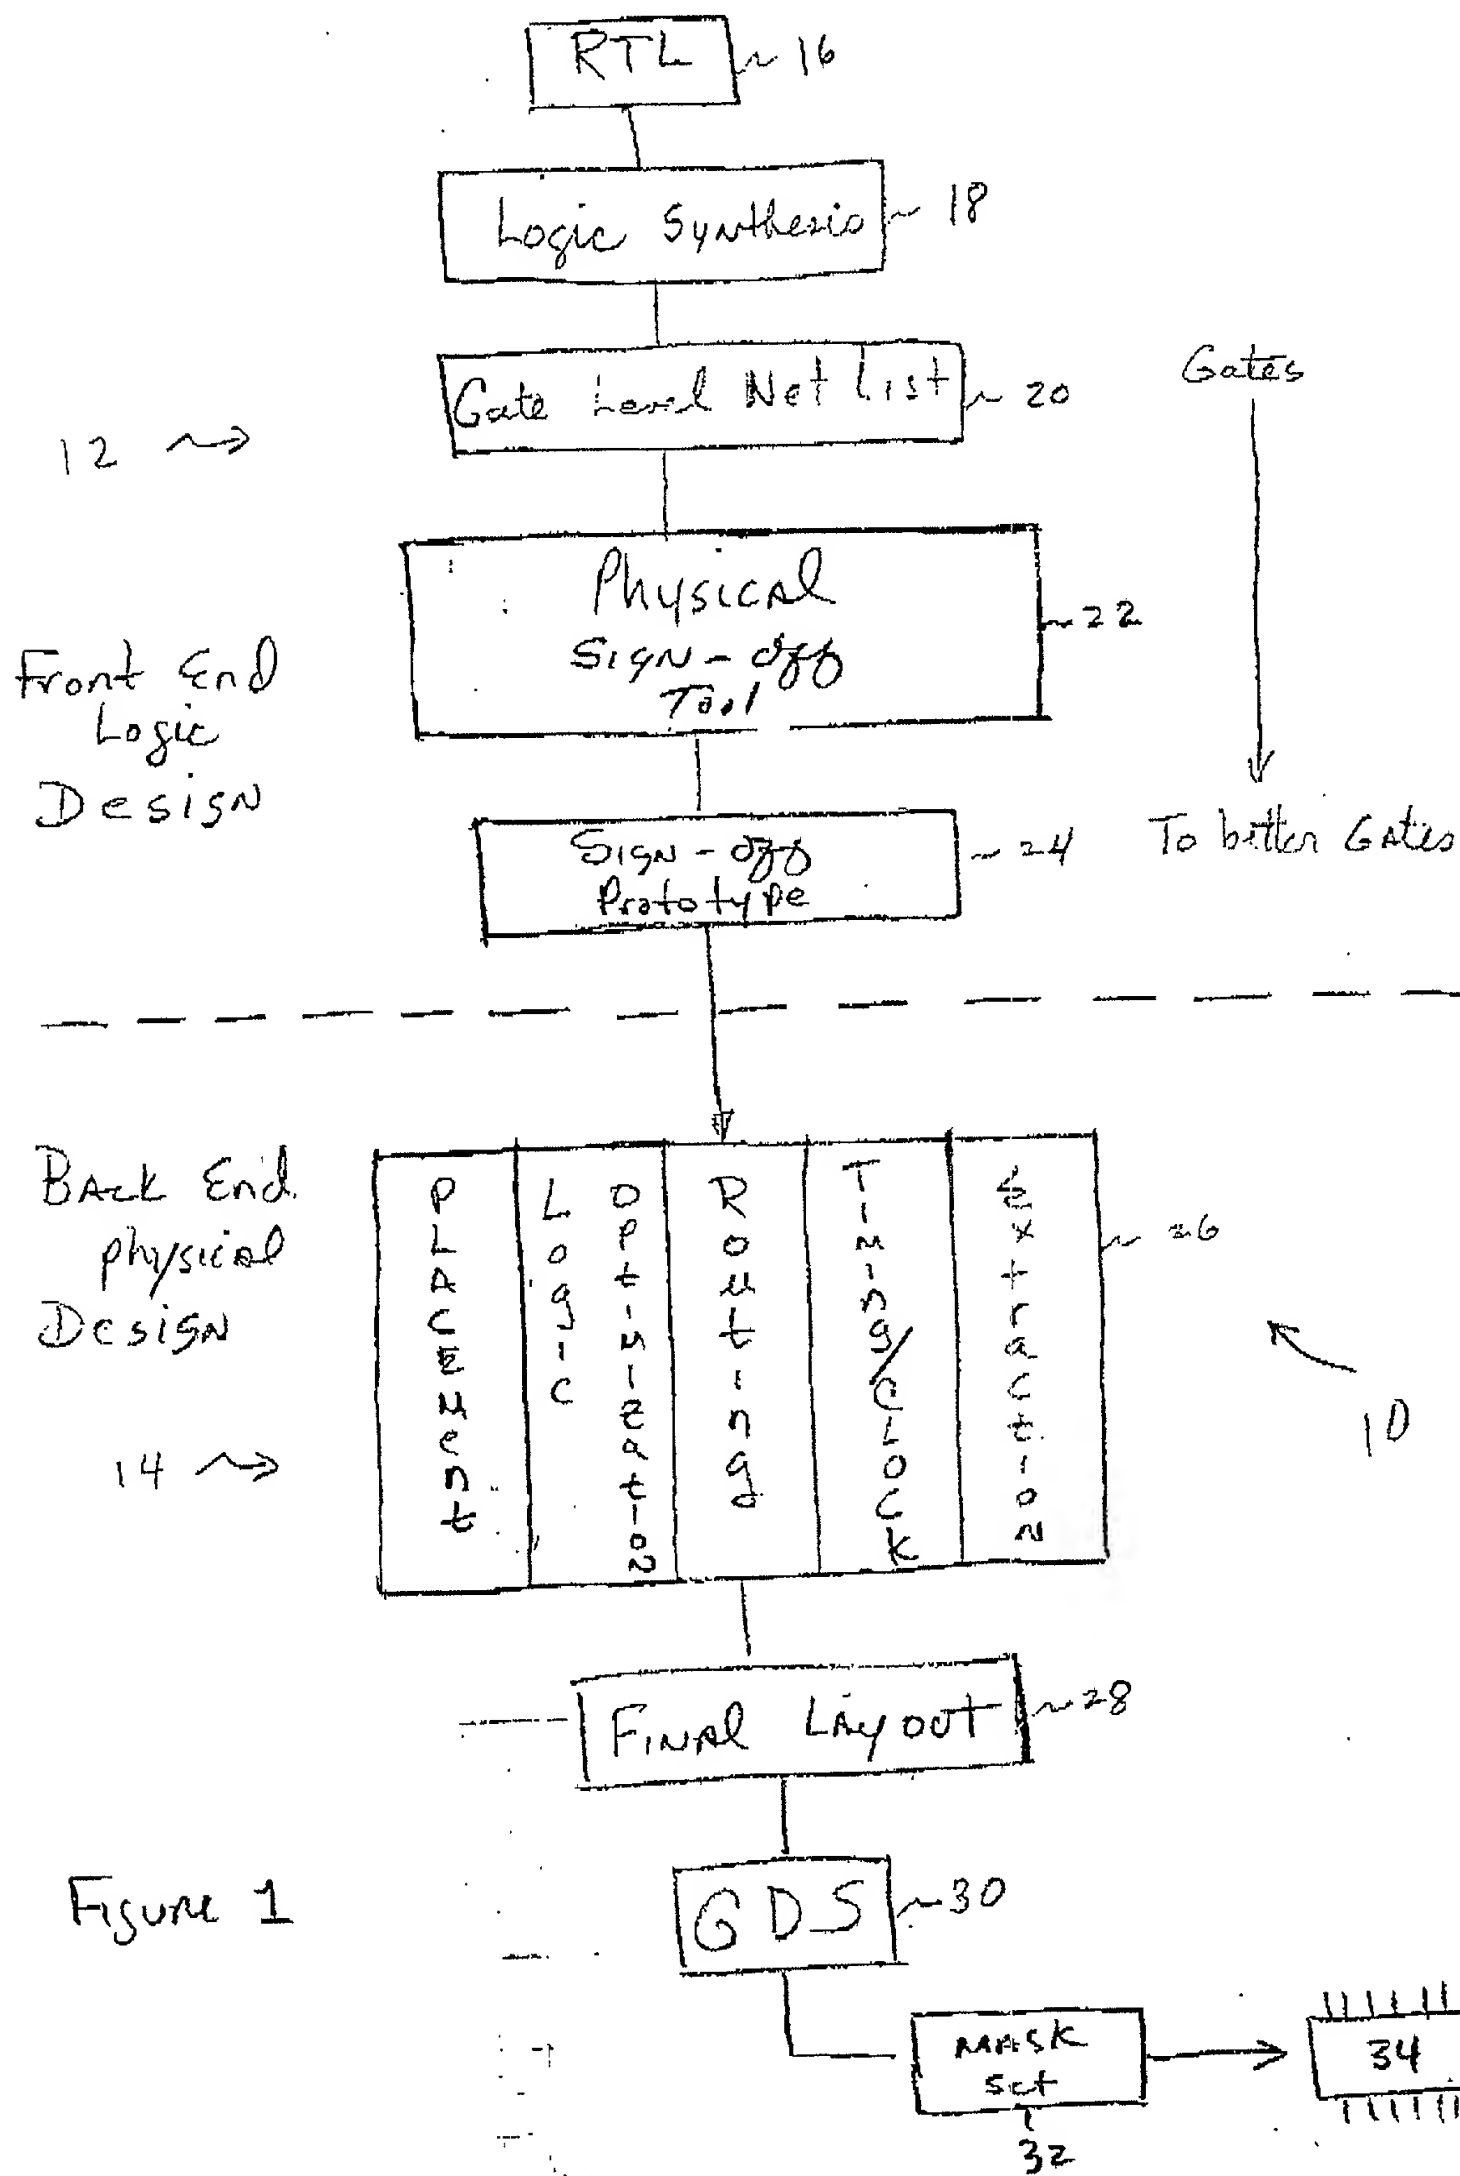 RTL 16
Logic Synthesis 18
Gate Level Net List 20
Gates
12
Physical
Sign-off
Tool
22
Front End
Logic
Design
To better Gates
Sign-off
Prototype
24
Back End
physical
Design
PLACEMENT
Logic
Optimization
Routing
Timing/Clock
Extraction
26
10
14
Final Layout 28
GDS 30
Figure 1
Mask
Set
32
34